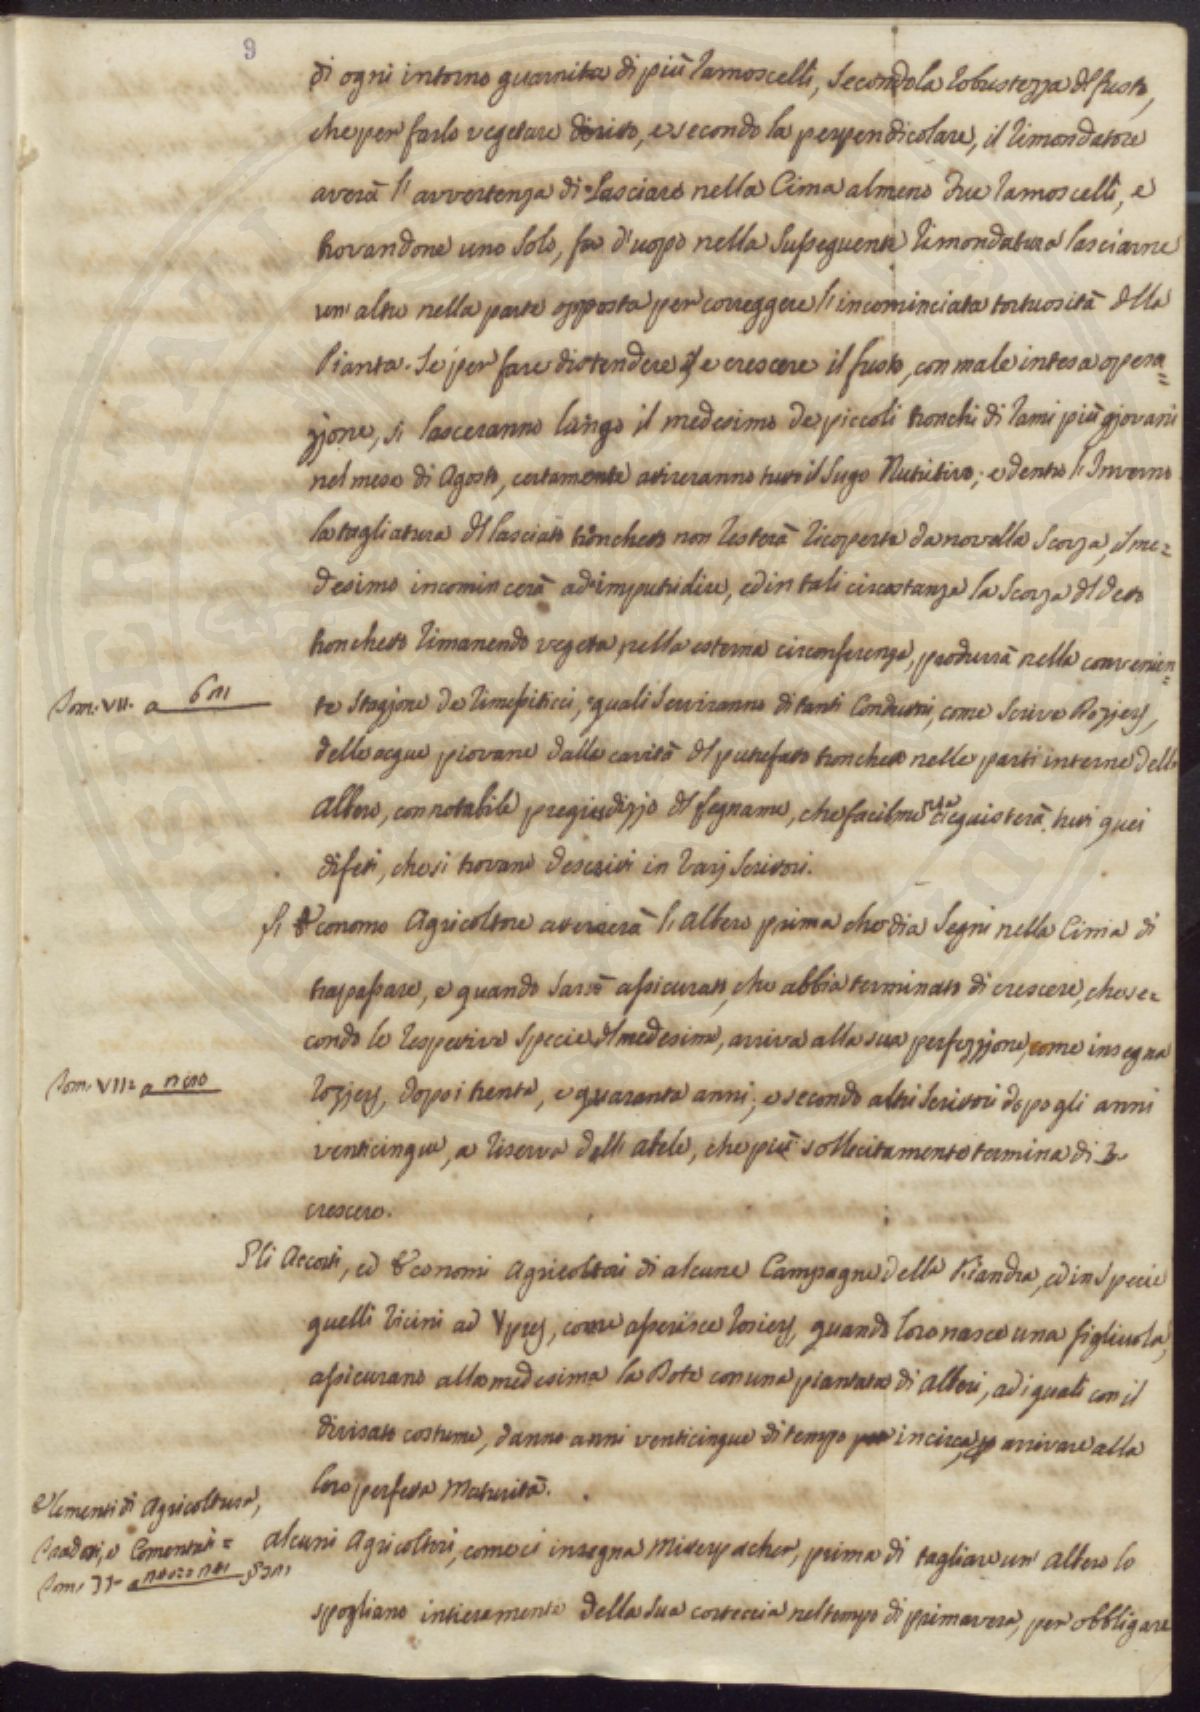 9
di ogni intorno guarnita di più ramoscelli, secondo la robustezza del fusto,
che per farlo vegetare diritto, e secondo la perpendicolare, il rimondatore
averà l'avvertenza di lasciare nella Cima almeno due ramoscelli, e
trovandone uno solo, fa d'uopo nella susseguente rimondatura lasciarne
un' altro nella parte opposta per correggere l'incominciata tortuosità della
Pianta. Se per fare distendere e crescere il fusto, con male intesa opera=
zione, si lasceranno lungo il medesimo de piccoli tronchi di rami più giovani
nel mese di Agosto, certamente attireranno tutto il sugo Nutritivo; e dentro l'Inverno
la tagliatura del lasciato tronchetto non resterà ricoperta da novella scorza, il me=
desimo incomincerà ad imputridire, ed in tali circostanze la scorza del detto
tronchetto rimanendo vegeta nella esterna circonferenza, produrrà nella convenien=
Tom. VII. a
te stagione de rimessiticci, quali serviranno di tanti Condutti, come scrive Rozjers,
delle acque piovane dalla cavità del putrefatto tronchetto nelle parti interne dello
Albero, con notabile pregiudizio del legname, che facilmente acquisterà tutti quei
difetti, che si trovano descritti in varj scrittori.
L' Economo Agricoltore atterrerà l' Albero prima che dia segni nella Cima di
trapassare, e quando sarà assicurato, che abbia terminato di crescere, che se=
condo le respettive specie del medesimo, arriva alla sua perfezzione, come insegna
Tom. VII. a
Rozjers, dopo i trenta, e quaranta anni; e secondo altri scrittori dopo gli anni
venticinque, a riserva delli abete, che più sollecitamente termina di
crescere.
Gli Accorti, ed Economi Agricoltori di alcune Campagne della Fiandra, ed in specie
quelli vicini ad Ypres, come asserisce Rosiers, quando loro nasce una figliuola,
assicurano alla medesima la Dote con una piantata di Alberi, ad i quali con il
divisato costume, danno anni venticinque di tempo incirca, arrivare alla
loro perfetta Maturità.
Elementi di Agricoltura,
Alcuni Agricoltori, come ci insegna Miterpacher, prima di tagliare un' Albero lo
Tradotti, e Comentati =
Tom. II. a
spogliano intieramente della sua corteccia nel tempo di primavera, per obbligare